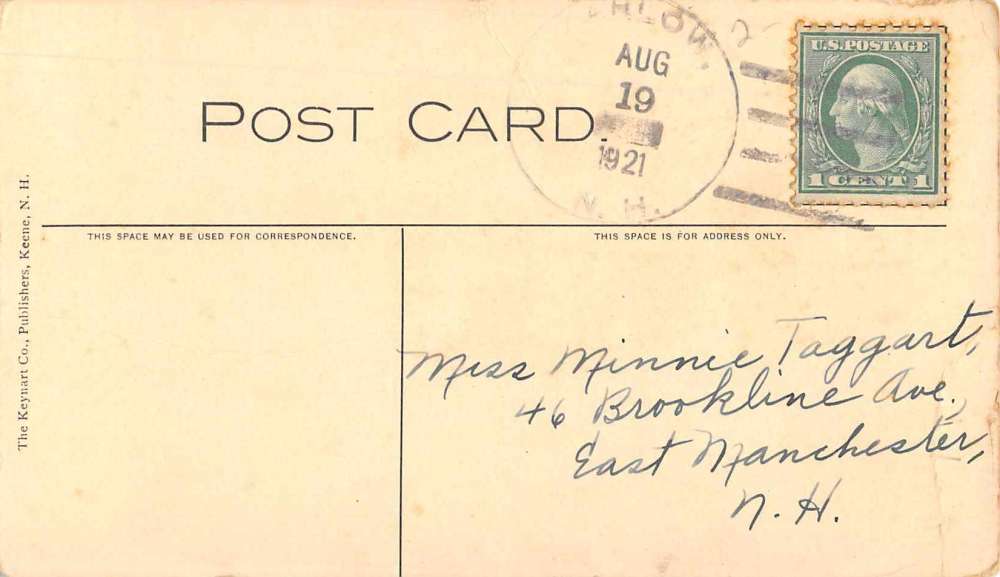 AUG
19
1921
N. H.
U.S. POSTAGE
1 CENT 1
POST CARD.
THIS SPACE MAY BE USED FOR CORRESPONDENCE.
THIS SPACE IS FOR ADDRESS ONLY.
The Keynart Co., Publishers, Keene, N. H.
Miss Minnie Taggart,
46 Brookline Ave.,
East Manchester,
N. H.